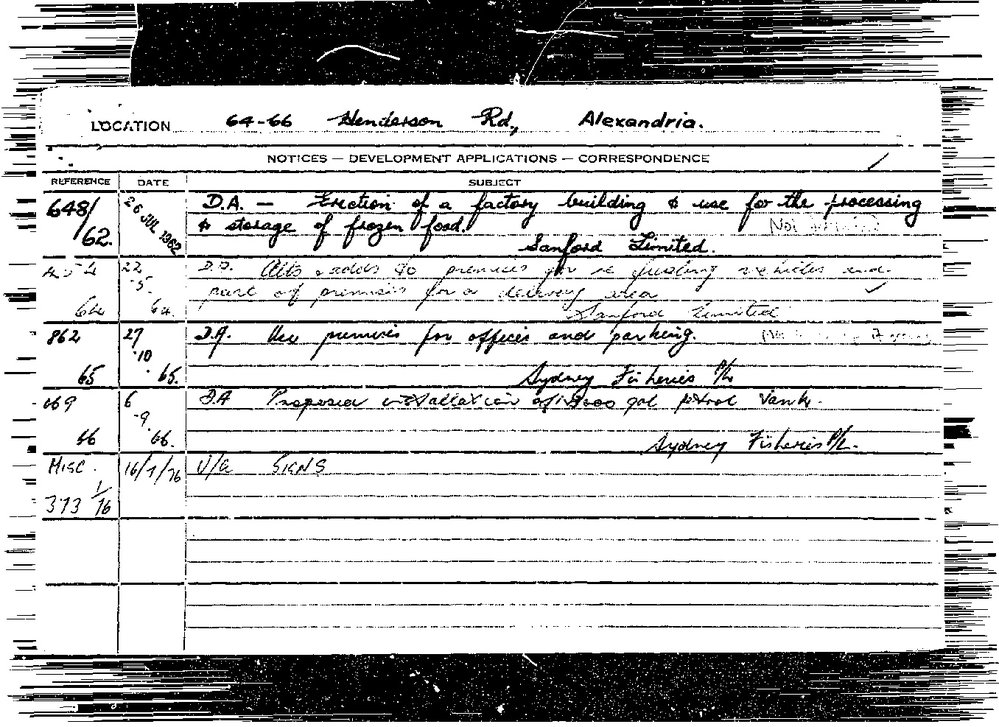 LOCATION 64-66 Henderson Rd, Alexandria.
NOTICES — DEVELOPMENT APPLICATIONS — CORRESPONDENCE
REFERENCE DATE SUBJECT
648/ 26 JUL 1962 D.A. — Erection of a factory building & use for the processing
62. & storage of frozen food. Not
Sanford Limited.
22 D.A. Alts & adds to premises for re fueling vehicles and
5. part of premises for a delivery area
64 64. Sanford Limited
862 27 D.A. Use premises for offices and parking.
10
65 65. Sydney Fisheries P/L
6 D.A Proposed installation of gal petrol tank.
9.
66 66. Sydney Fisheries P/L.
MISC. 16/7/76 U/A SIGNS
373 1/76